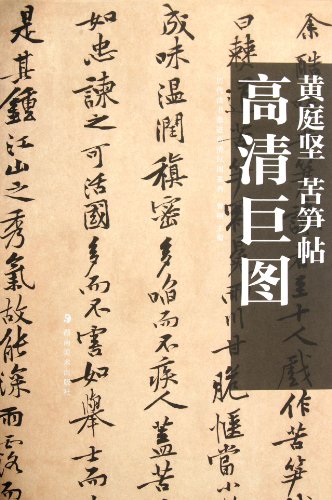 黄庭坚 苦笋帖
高清巨图
余酷
十人戲作苦笋
曰僰
甘脆愜當小
成味溫潤縝密多啗而不疾人蓋苦
如忠諫之可活國多而不害如舉士而
是其鍾江山之秀氣故能深雨露而
湖南美术出版社